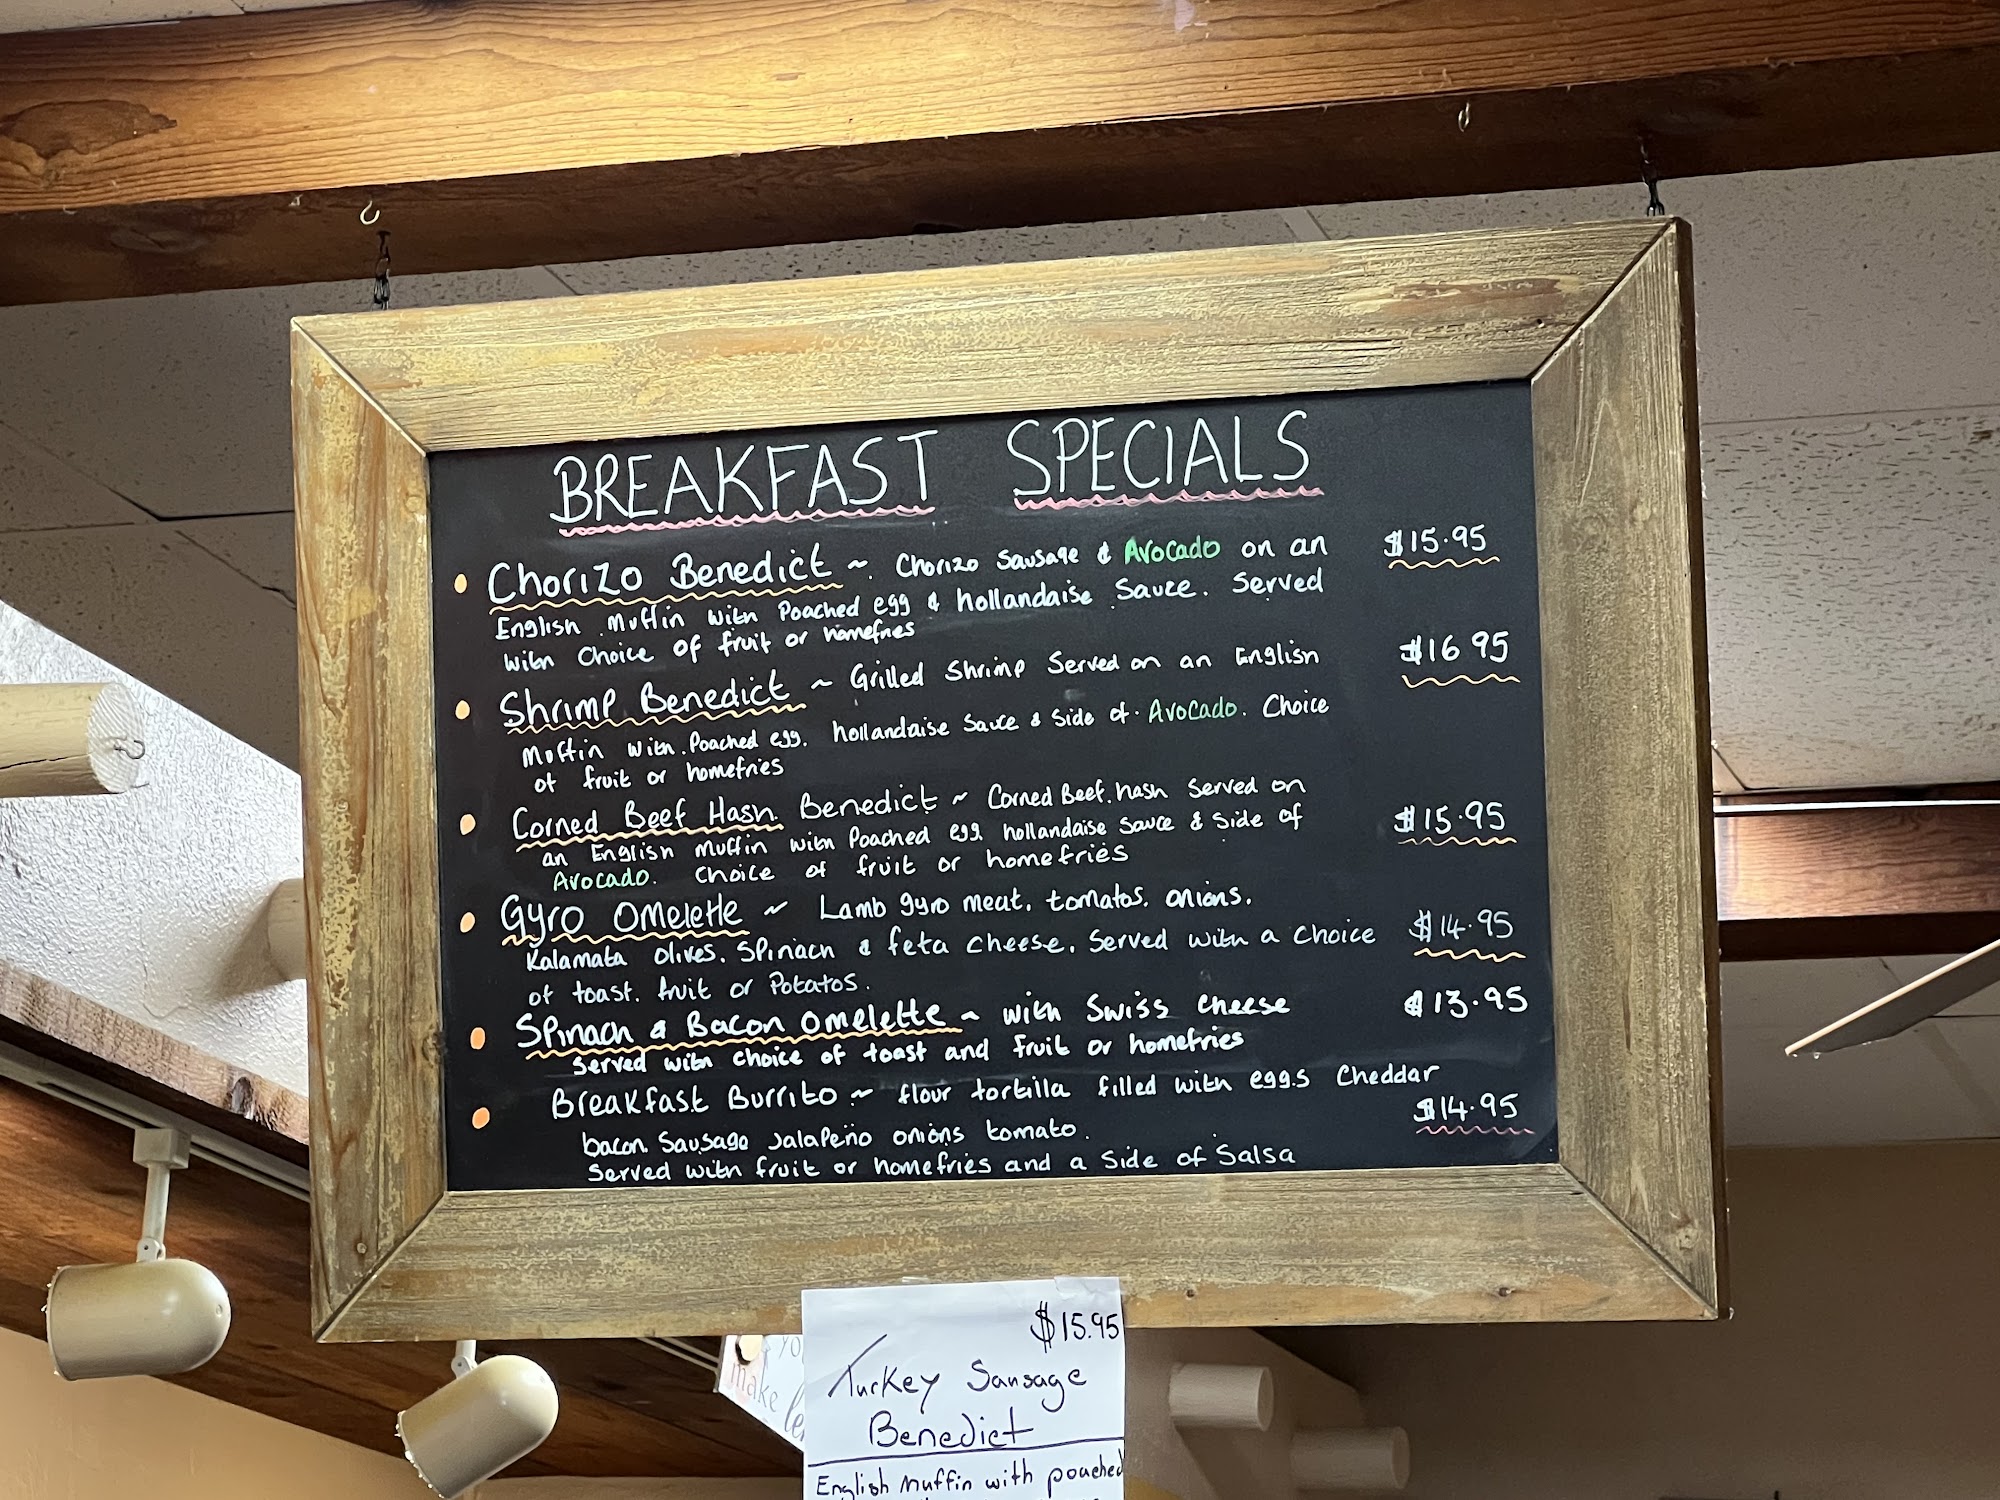 BREAKFAST SPECIALS
Chorizo Benedict ~ Chorizo Sausage & Avocado on an $15.95
English Muffin with Poached egg & hollandaise Sauce. Served
with Choice of fruit or homefries
Shrimp Benedict ~ Grilled Shrimp Served on an English $16.95
Muffin with Poached egg. hollandaise Sauce & Side of Avocado. Choice
of fruit or homefries
Corned Beef Hash Benedict ~ Corned Beef hash Served on
an English Muffin with Poached egg hollandaise Sauce & Side of $15.95
Avocado. Choice of fruit or homefries
Gyro Omelette ~ Lamb gyro meat. tomatos. onions.
Kalamata olives. Spinach & feta Cheese. Served with a Choice $14.95
of toast. fruit or Potatos.
Spinach & Bacon Omelette ~ with Swiss Cheese $13.95
Served with choice of toast and fruit or homefries
Breakfast Burrito ~ flour tortilla filled with eggs Cheddar
bacon Sausage Jalapeño onions tomato. $14.95
Served with fruit or homefries and a Side of Salsa
$15.95
Turkey Sausage
Benedict
English Muffin with poached
make